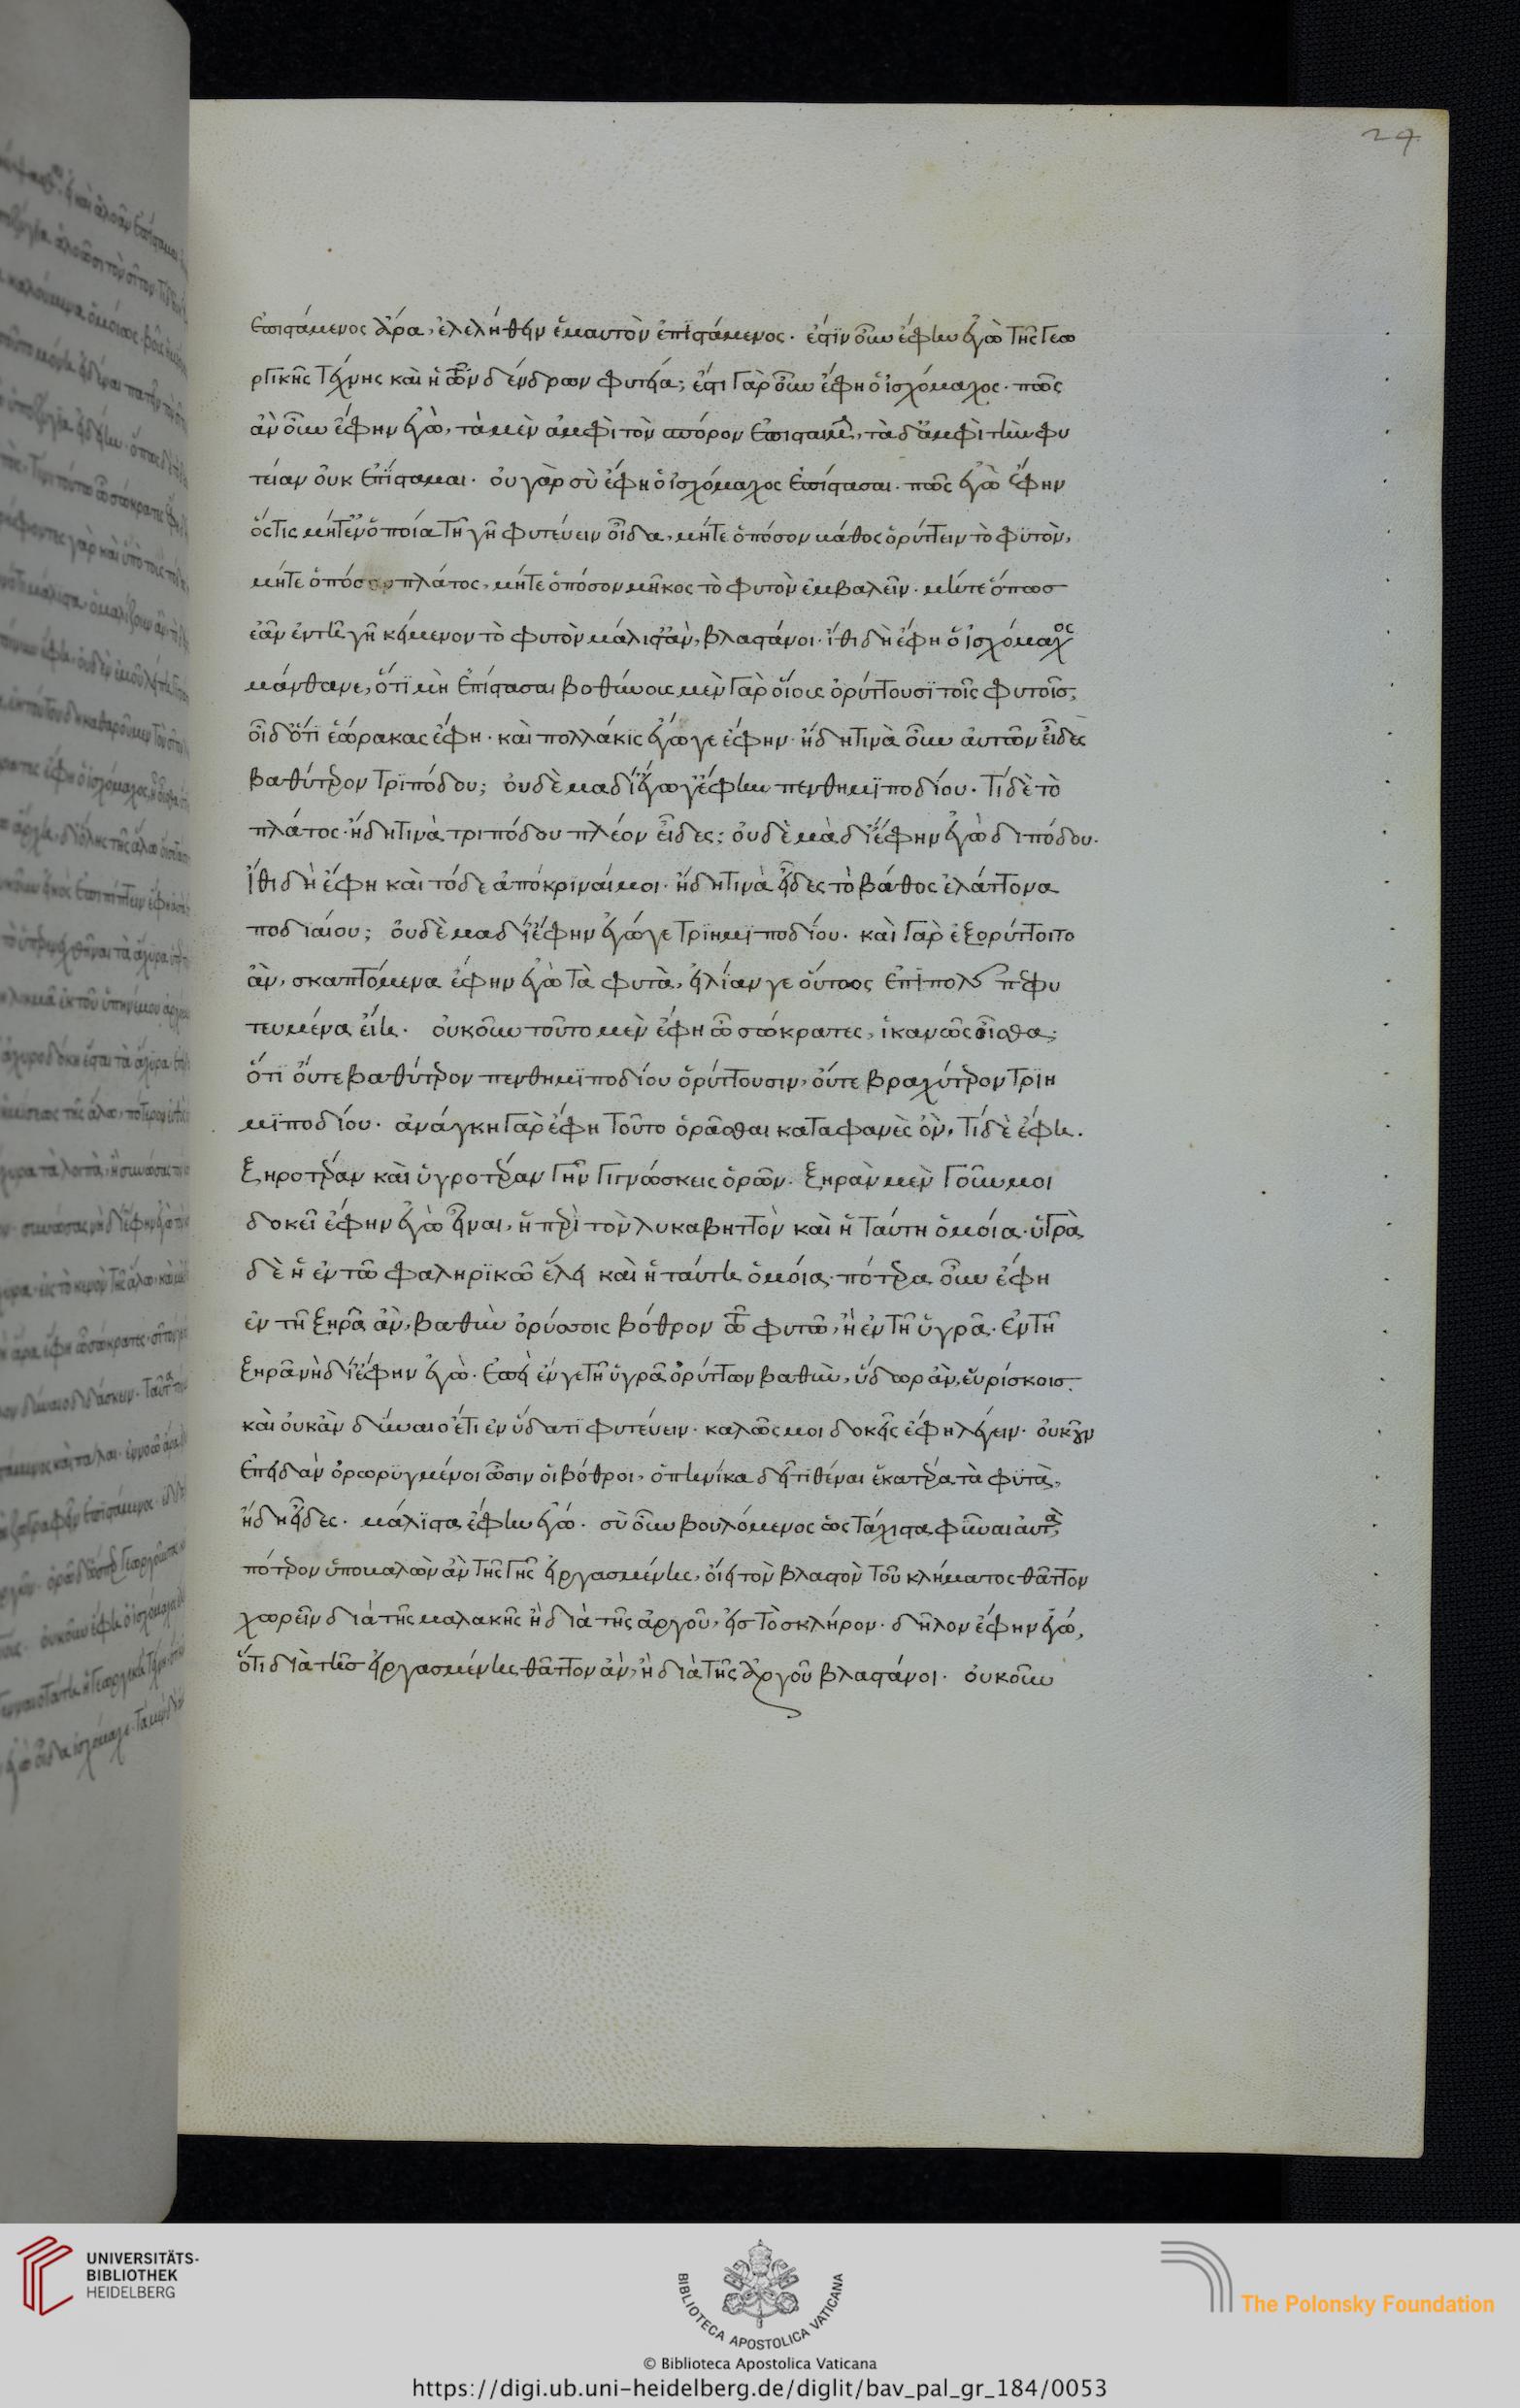 24
ἐπιστάμενος ἄρα, ἐλελήθειν ἐμαυτὸν ἐπϊστάμενος. ἐστὶν οὖν ἔφην ἐγὼ τῆς γεω
ργικῆς τέχνης καὶ ἡ τῶν δένδρων φυτεία; ἔστι γὰρ οὖν ἔφη ὁ ἰσχόμαχος. πῶς
ἂν οὖν ἔφην ἐγὼ, τὰ μὲν ἀμφὶ τὸν σπόρον ἐπισταίμην, τὰ δ' ἀμφὶ τὴν φυ
τείαν οὐκ ἐπίσταμαι. οὐ γὰρ σὺ ἔφη ὁ ἰσχόμαχος ἐπίστασαι. πῶς ἐγὼ ἔφην
ὅστις μήτ' ἐν ὁποία τῆ γῆ φυτεύειν οἶδα, μήτε ὁπόσον βάθος ὀρύττειν τὸ φϋτὸν,
μήτε ὁπόσον πλάτος, μήτε ὁπόσον μῆκος τὸ φυτὸν ἐμβαλεῖν. μήτε ὅπωσ
ἐὰν ἐν τῆ γῆ κείμενον τὸ φυτὸν μάλιστ' ἂν, βλαστάνοι. ἴθι δὴ ἔφη ὁ ἰσχόμαχος
μάνθανε, ὅτϊ μὴ ἐπίστασαι βοθύνους μὲν γὰρ οἵους ὀρύττουσϊ τοῖς φυτοῖσ,
οἶδ' ὅτϊ ἑώρακας ἔφη. καὶ πολλάκϊς ἐγώγε ἔφην. ἤδη τινὰ οὖν αὐτῶν εἶδες
βαθύτερον τρϊπόδου; οὐδὲ μα δί' ἐγωγ' ἔφην πενθημϊποδίου. τί δὲ τὸ
πλάτος. ἤδη τινὰ τριπόδου πλέον εἶδες; οὐδὲ μὰ δί' ἔφην ἐγὼ διπόδου.
ἴθι δὴ ἔφη καὶ τόδε ἀπόκρϊναί μοι. ἤδη τινὰ εἶδες τὸ βάθος ἐλάττονα
ποδιαίου; οὐδὲ μα δί' ἔφην ἐγώγε τρϊημϊποδίου. καὶ γὰρ ἐξορύττοιτο
ἂν, σκαπτόμενα ἔφην ἐγὼ τὰ φυτὰ, εἰ λίαν γε οὕτως ἐπιπολῆς πεφυ
τευμένα εἴη. οὐκοῦν τοῦτο μὲν ἔφη ὦ σώκρατες, ἱκανῶς οἶσθα;
ὅτϊ οὔτε βαθύτερον πενθημϊποδίου ὀρύττουσιν, οὔτε βραχύτερον τρϊη
μϊποδίου. ἀνάγκη γὰρ ἔφη τοῦτο ὁρᾶσθαι καταφανὲς ὂν. τί δὲ ἔφη.
ξηροτέραν καὶ ὑγροτέραν γῆν γιγνώσκεις ὁρῶν. ξηρὰν μὲν γοῦν μοι
δοκεῖ ἔφην ἐγὼ εἶναι, ἡ περὶ τὸν λυκαβηττὸν καὶ ἡ ταύτη ὁμοία. ὑγρὰ
δὲ ἡ ἐν τῶ φαληρϊκῶ ἕλει καὶ ἡ ταύτη ὁμοία. πότερα οὖν ἔφη
ἐν τῆ ξηρᾶ ἂν, βαθὺν ὀρύσσοις βόθρον τῶ φυτῶ, ἢ ἐν τῆ ὑγρᾶ. ἐν τῆ
ξηρᾶ νὴ δί' ἔφην ἐγὼ. ἐπεὶ ἔν γε τῆ ὑγρᾶ ὀρύττων βαθὺν, ὕδωρ ἂν, εὑρίσκοισ.
καὶ οὐκ ἂν δύναιο ἔτι ἐν ὕδατϊ φυτεύειν. καλῶς μοι δοκεῖς ἔφη λέγειν. οὐκοῦν
ἐπειδὰν ὀρωρϋγμένοι ὦσιν οἱ βόθροι, ὁπηνίκα δεῖ τϊθέναι ἑκατέρα τὰ φϋτὰ,
ἤδη εἶδες. μάλϊστα ἔφην ἐγώ. σὺ οὖν βουλόμενος ὡς τάχιστα φῦναι αὐτὰ,
πότερον ὑποβαλὼν ἂν τῆς γῆς εἰργασμένης, οἴει τὸν βλαστὸν τοῦ κλήματος θᾶττον
χωρεῖν διὰ τῆς μαλακῆς ἢ διὰ τῆς ἀργοῦ, εἰσ τὸ σκλήρον. δῆλον ἔφην ἐγώ,
ὅτι διὰ τῆσ εἰργασμένης θᾶττον ἂν, ἢ διὰ τῆς ἀργοῦ βλαστάνοι. οὐκοῦν
UNIVERSITÄTS-
BIBLIOTHEK
HEIDELBERG
BIBLIOTECA APOSTOLICA VATICANA
The Polonsky Foundation
© Biblioteca Apostolica Vaticana
https://digi.ub.uni-heidelberg.de/diglit/bav_pal_gr_184/0053